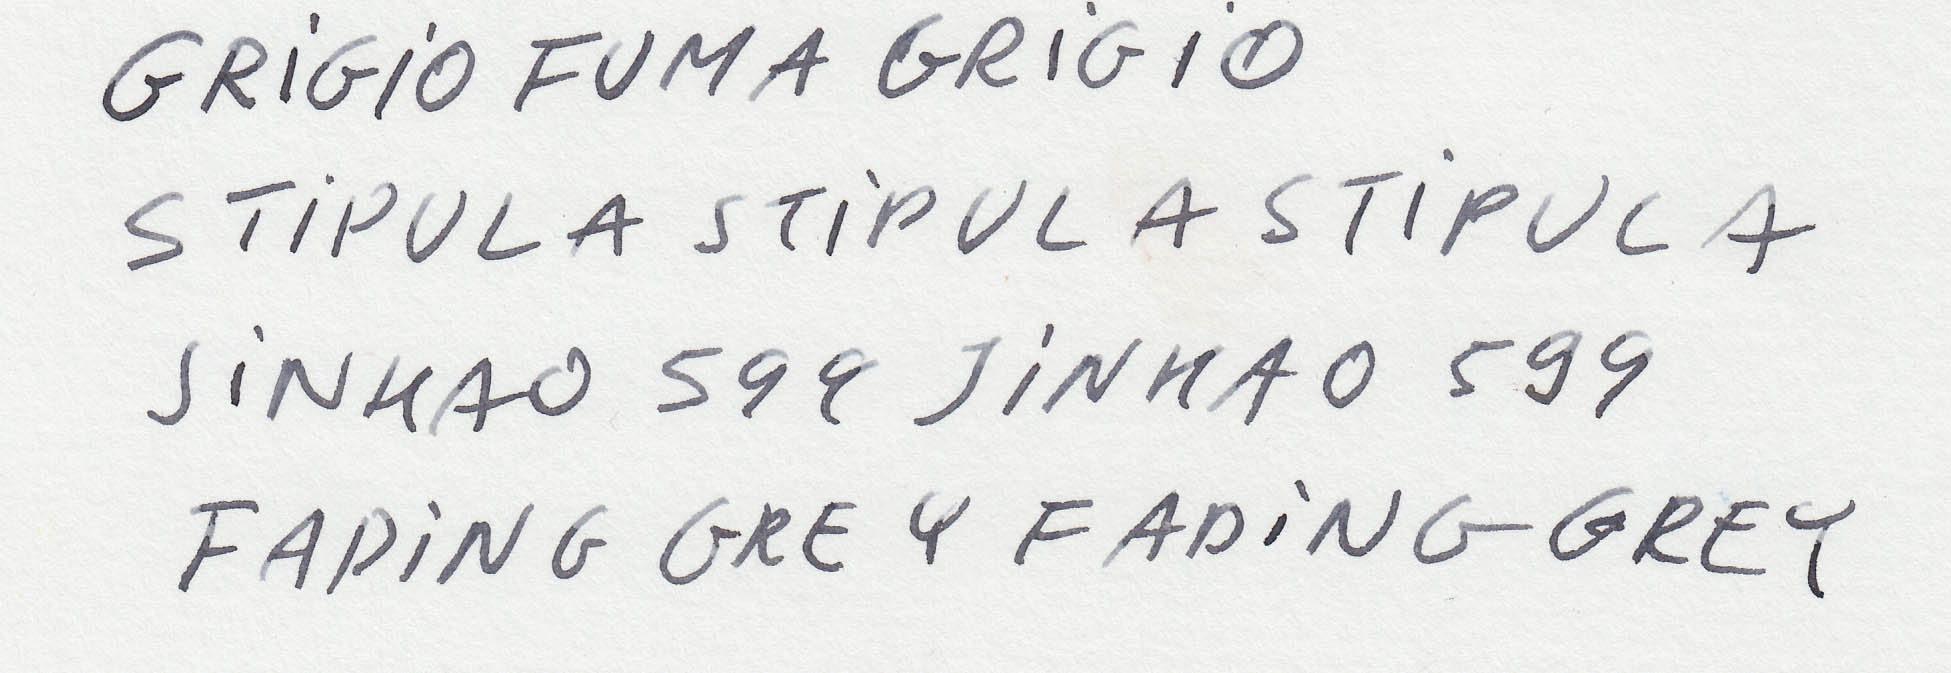 GRiGiO FUMA GRiGiO
STiPULA STiPULA STiPULA
JiNHAO 599 JiNHAO 599
FADiNG GREY FADiNG GREY